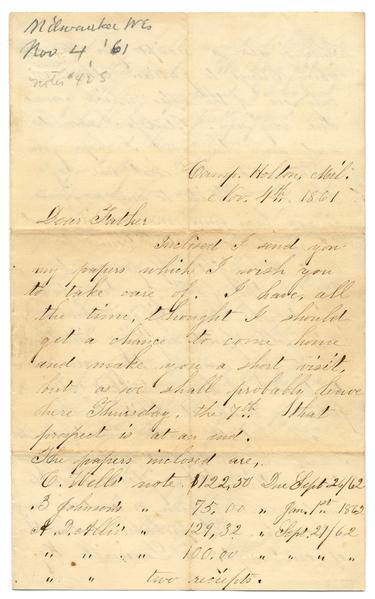 Milwaukee Wis
Nov. 4 '61
notes #425
Camp. Holton, Mil.
Nov. 4th. 1861
Dear Father
Inclosed I send you
my papers which I wish you
to take care of. I have, all
the time, thought I should
get a chance to come home
and make you a short visit,
but as we shall probably leave
here Thursday, the 7th. that
prospect is at an end.
The papers inclosed are,
C. Wells' note $122,50 Due Sept. 24/62
Johnson's " 75.00 " Jan. 1st 1862
A. D. Allis' " 129,32 " Sept. 21/62
" " " 100.00 " " " "
" " two reciepts.